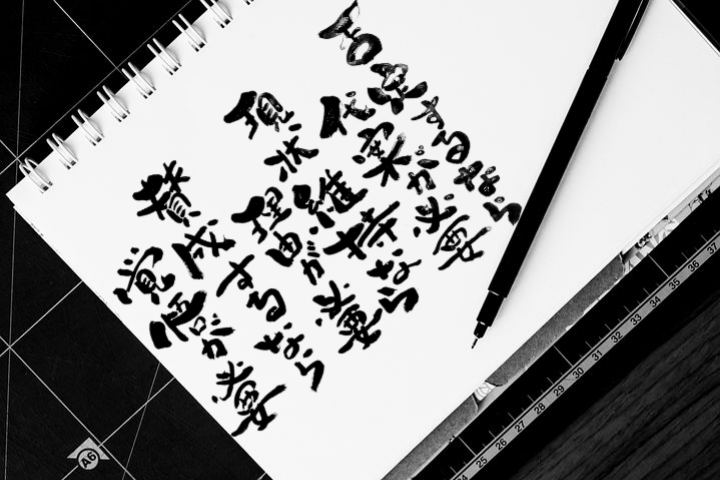 否定するなら
代案が必要
現状維持なら
理由が必要
賛成するなら
覚悟が必要
A6
24 25 26 27 28 29 30 31 32 33 34 35 36 37